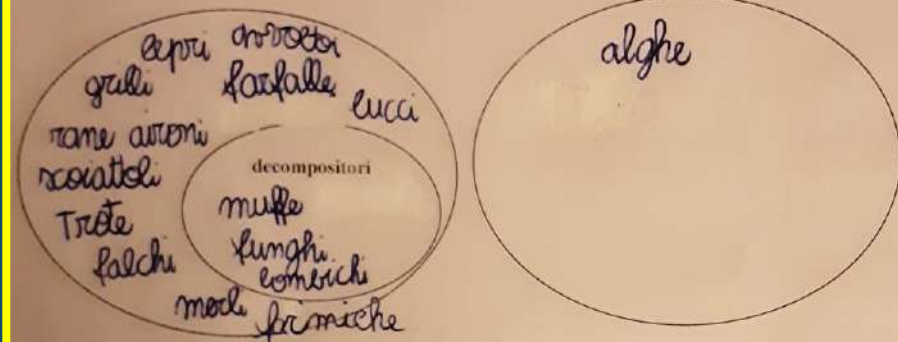 lepri avvoltoi
grilli farfalle
lucci
rane aironi
scoiattoli
Trote
falchi
merli
formiche
decompositori
muffe
funghi
lombrichi
alghe